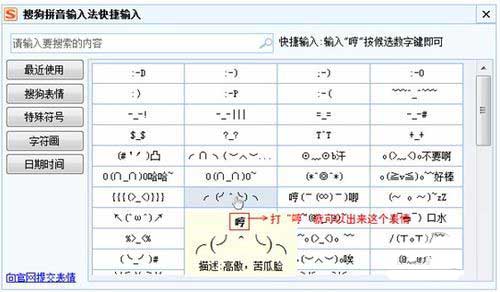 搜狗拼音输入法快捷输入
请输入要搜索的内容
快捷输入:输入"哼"按候选数字键即可
最近使用
搜狗表情
特殊符号
字符画
日期时间
:-D :-) ;-) :-O
:) :-P :-(
-_-! -_-||| =_= -_-#
$_$ ?_? T^T +_+
(#'′)凸 ⊙﹏⊙b汗 o(>﹏<)o不要啊
O(∩_∩)O哈哈~ O(∩_∩)O~ (*^◎^*) o(≧v≦)o~~好棒
{{{(>_<)}}} ╭(╯^╰)╮ (~ o ~)~zZ
哼
打"哼"就可以出来这个表情
口水
%>_<% /(ㄒoㄒ)/~~
描述:高傲,苦瓜脸
向官网提交表情